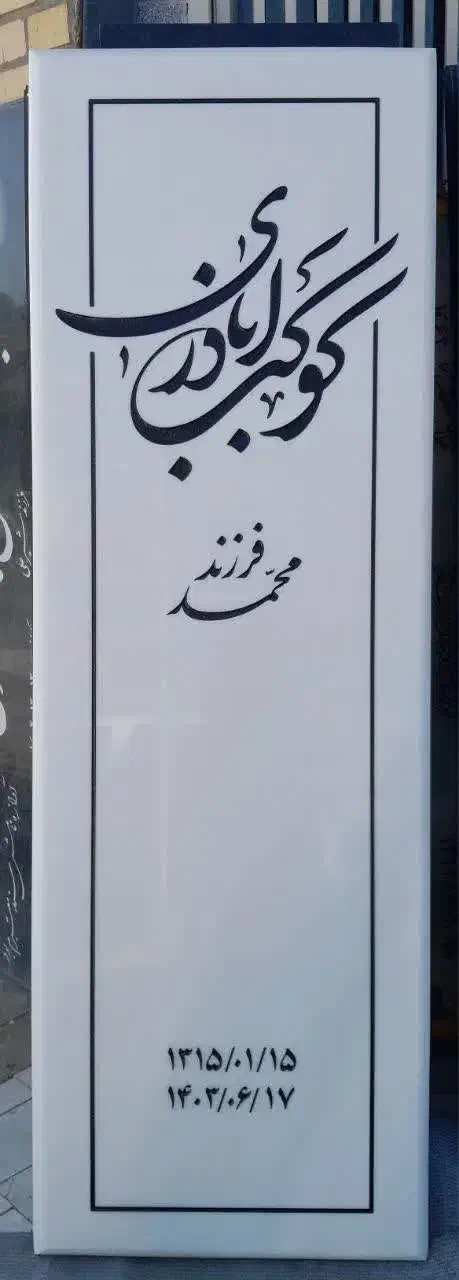 کوکب اباذری
فرزند
محمّد
۱۳۱۵/۰۱/۱۵
۱۴۰۳/۰۶/۱۷